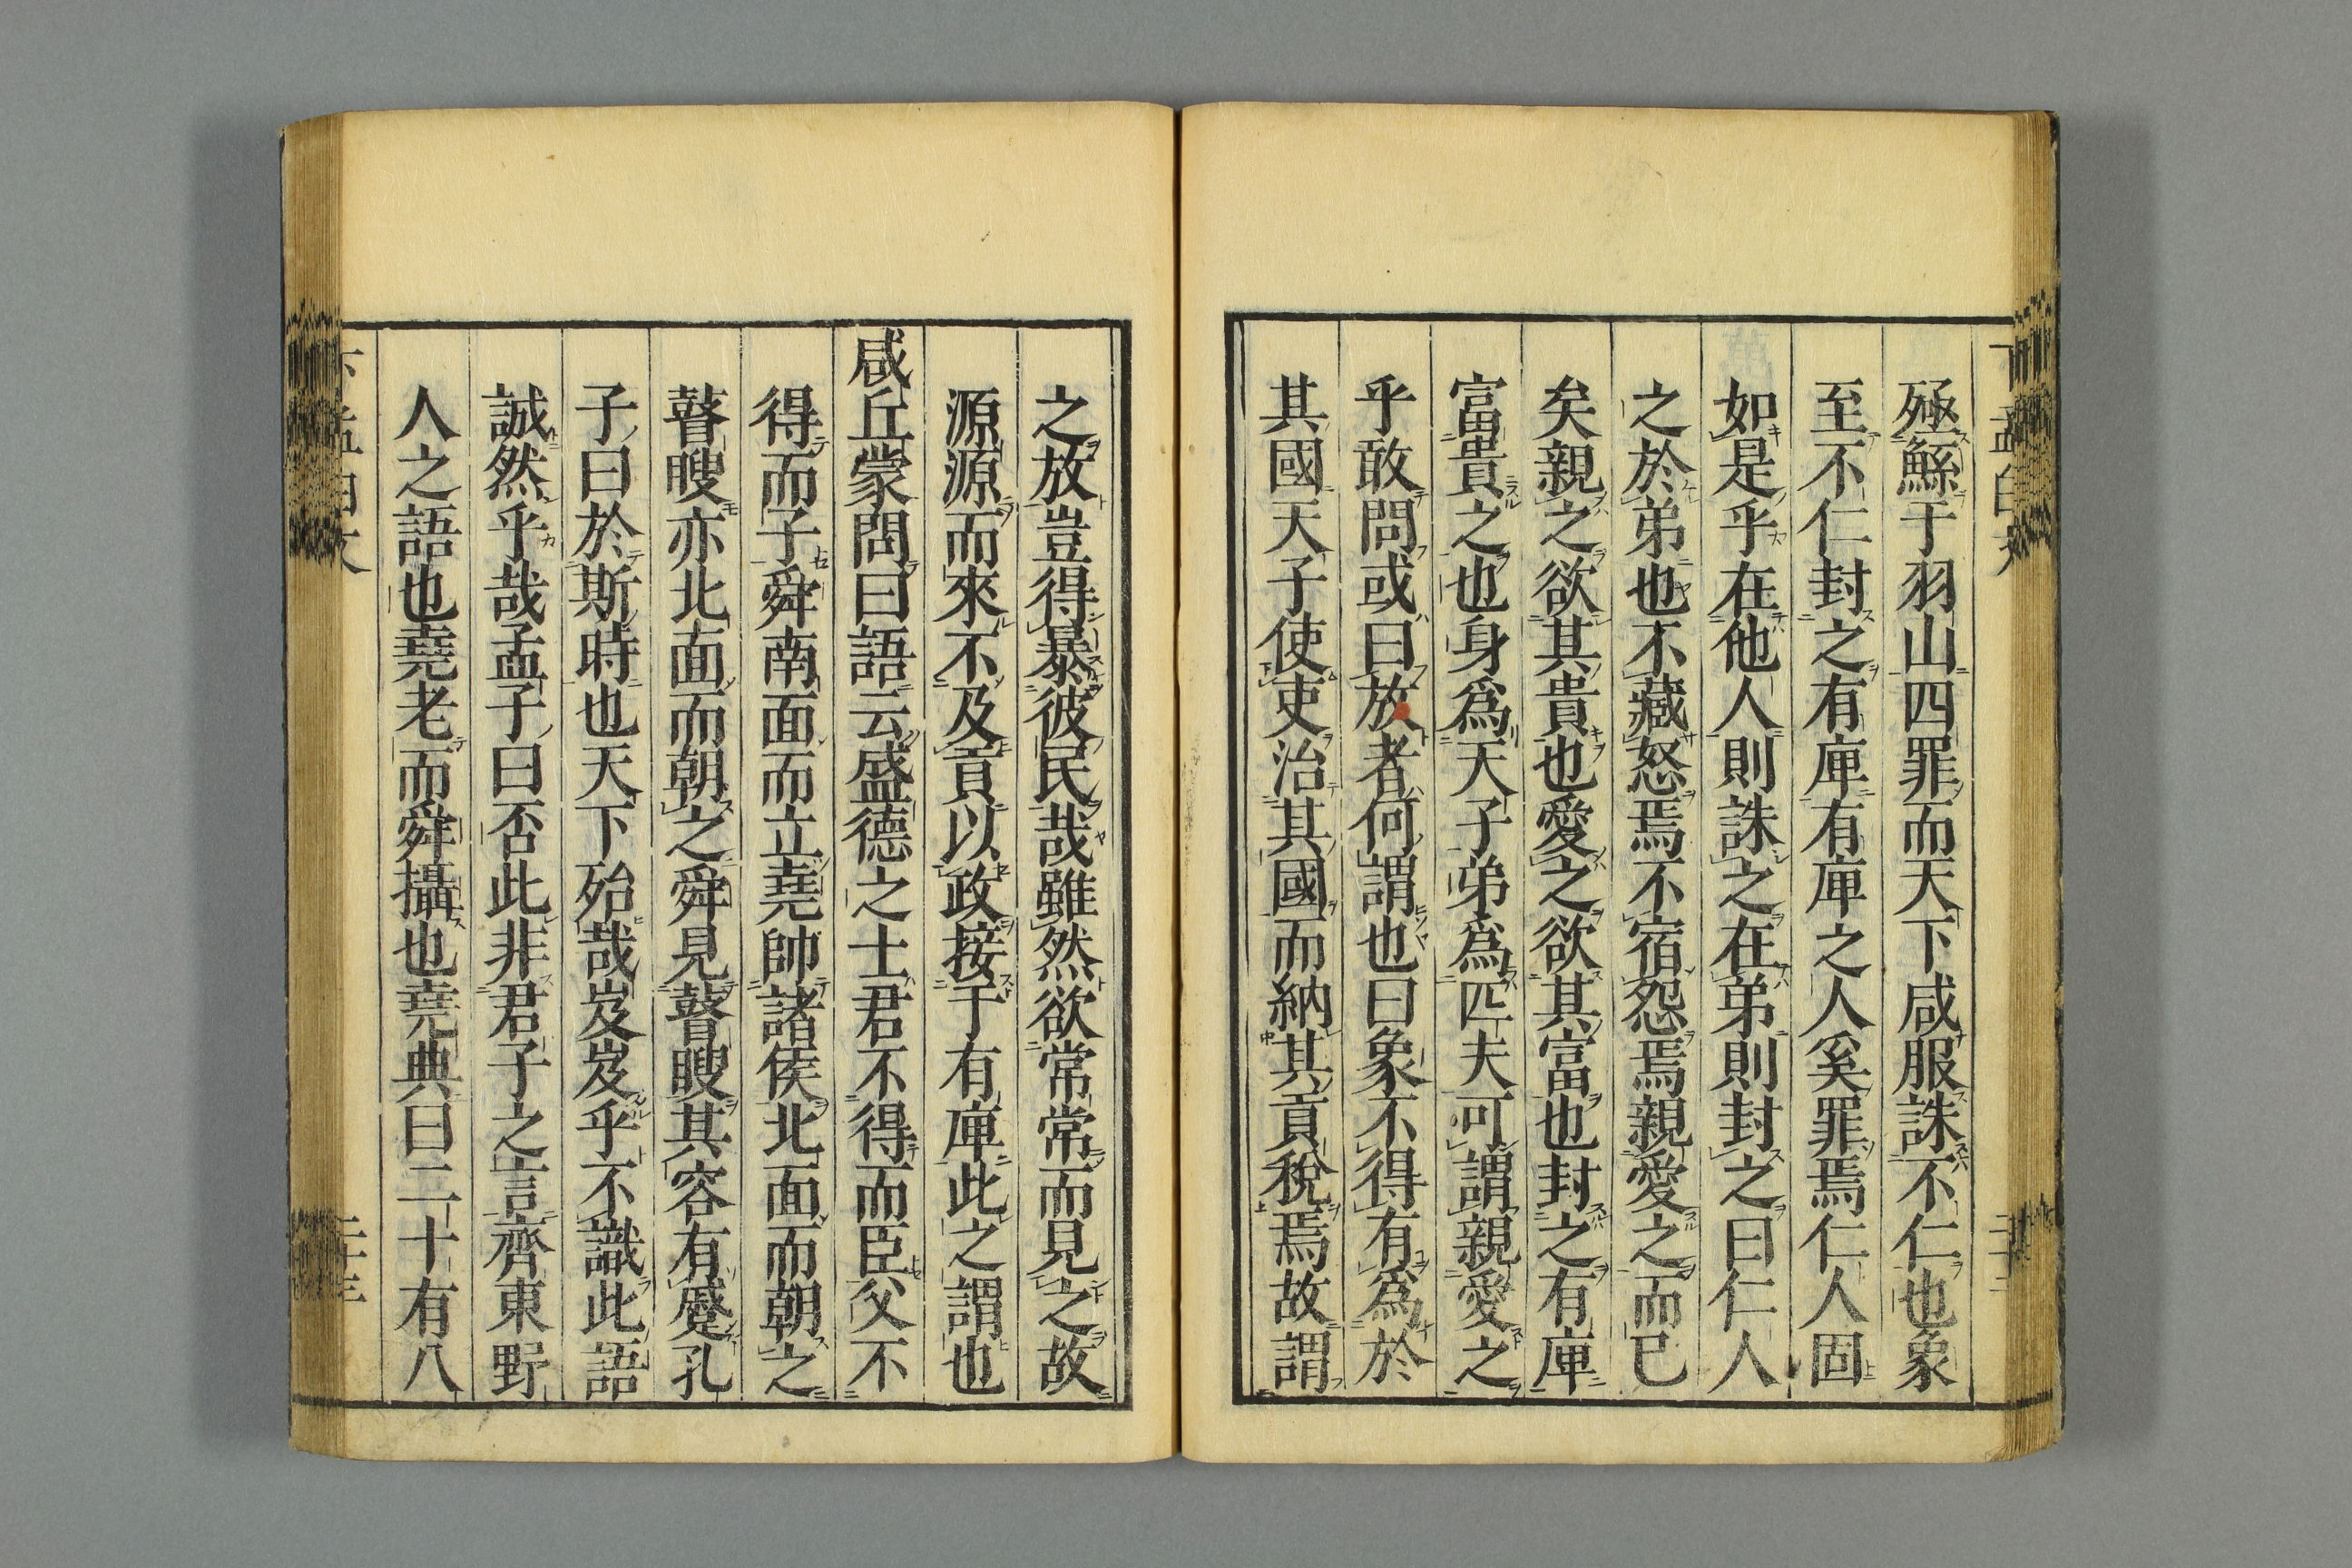 殛鯀于羽山四罪而天下咸服誅不仁也象
至不仁封之有庳有庳之人奚罪焉仁人固
如是乎在他人則誅之在弟則封之曰仁人
之於弟也不藏怒焉不宿怨焉親愛之而已
矣親之欲其貴也愛之欲其富也封之有庳
富貴之也身爲天子弟爲匹夫可謂親愛之
乎敢問或曰放者何謂也曰象不得有爲於
其國天子使吏治其國而納其貢稅焉故謂
之放豈得暴彼民哉雖然欲常常而見之故
源源而來不及貢以政接于有庳此之謂也
咸丘蒙問曰語云盛德之士君不得而臣父不
得而子舜南面而立堯帥諸侯北面而朝之
瞽瞍亦北面而朝之舜見瞽瞍其容有蹙孔
子曰於斯時也天下殆哉岌岌乎不識此語
誠然乎哉孟子曰否此非君子之言齊東野
人之語也堯老而舜攝也堯典曰二十有八